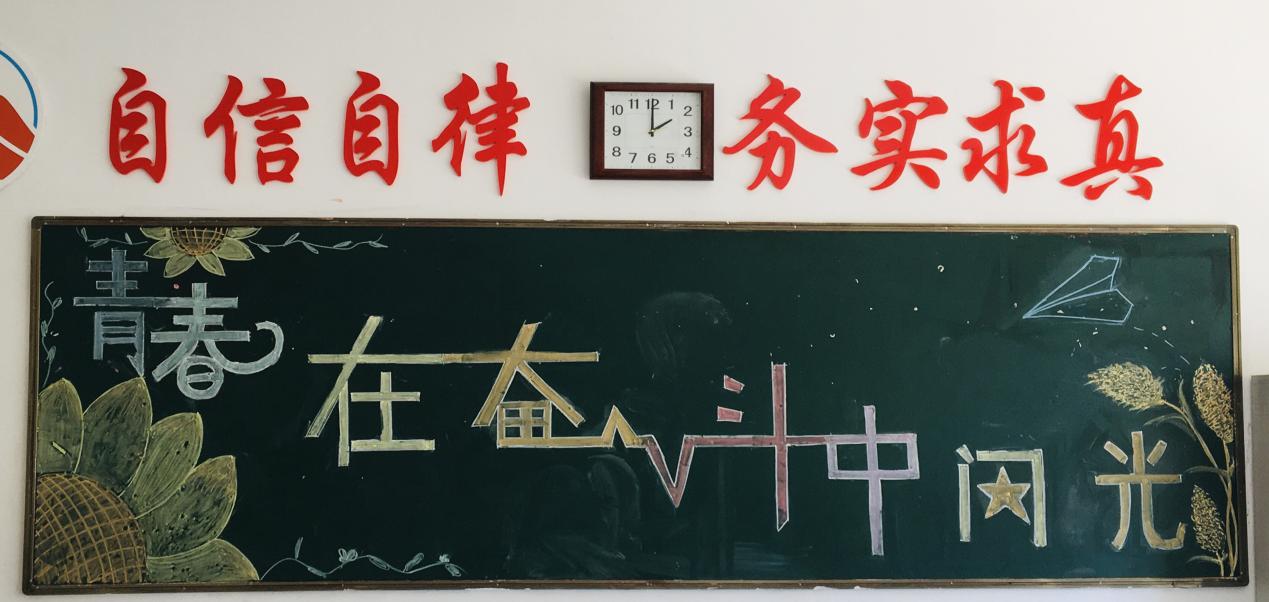 自信自律 务实求真
11 12 1
10 2
9 3
8 4
7 6 5
青春
在奋斗中闪光